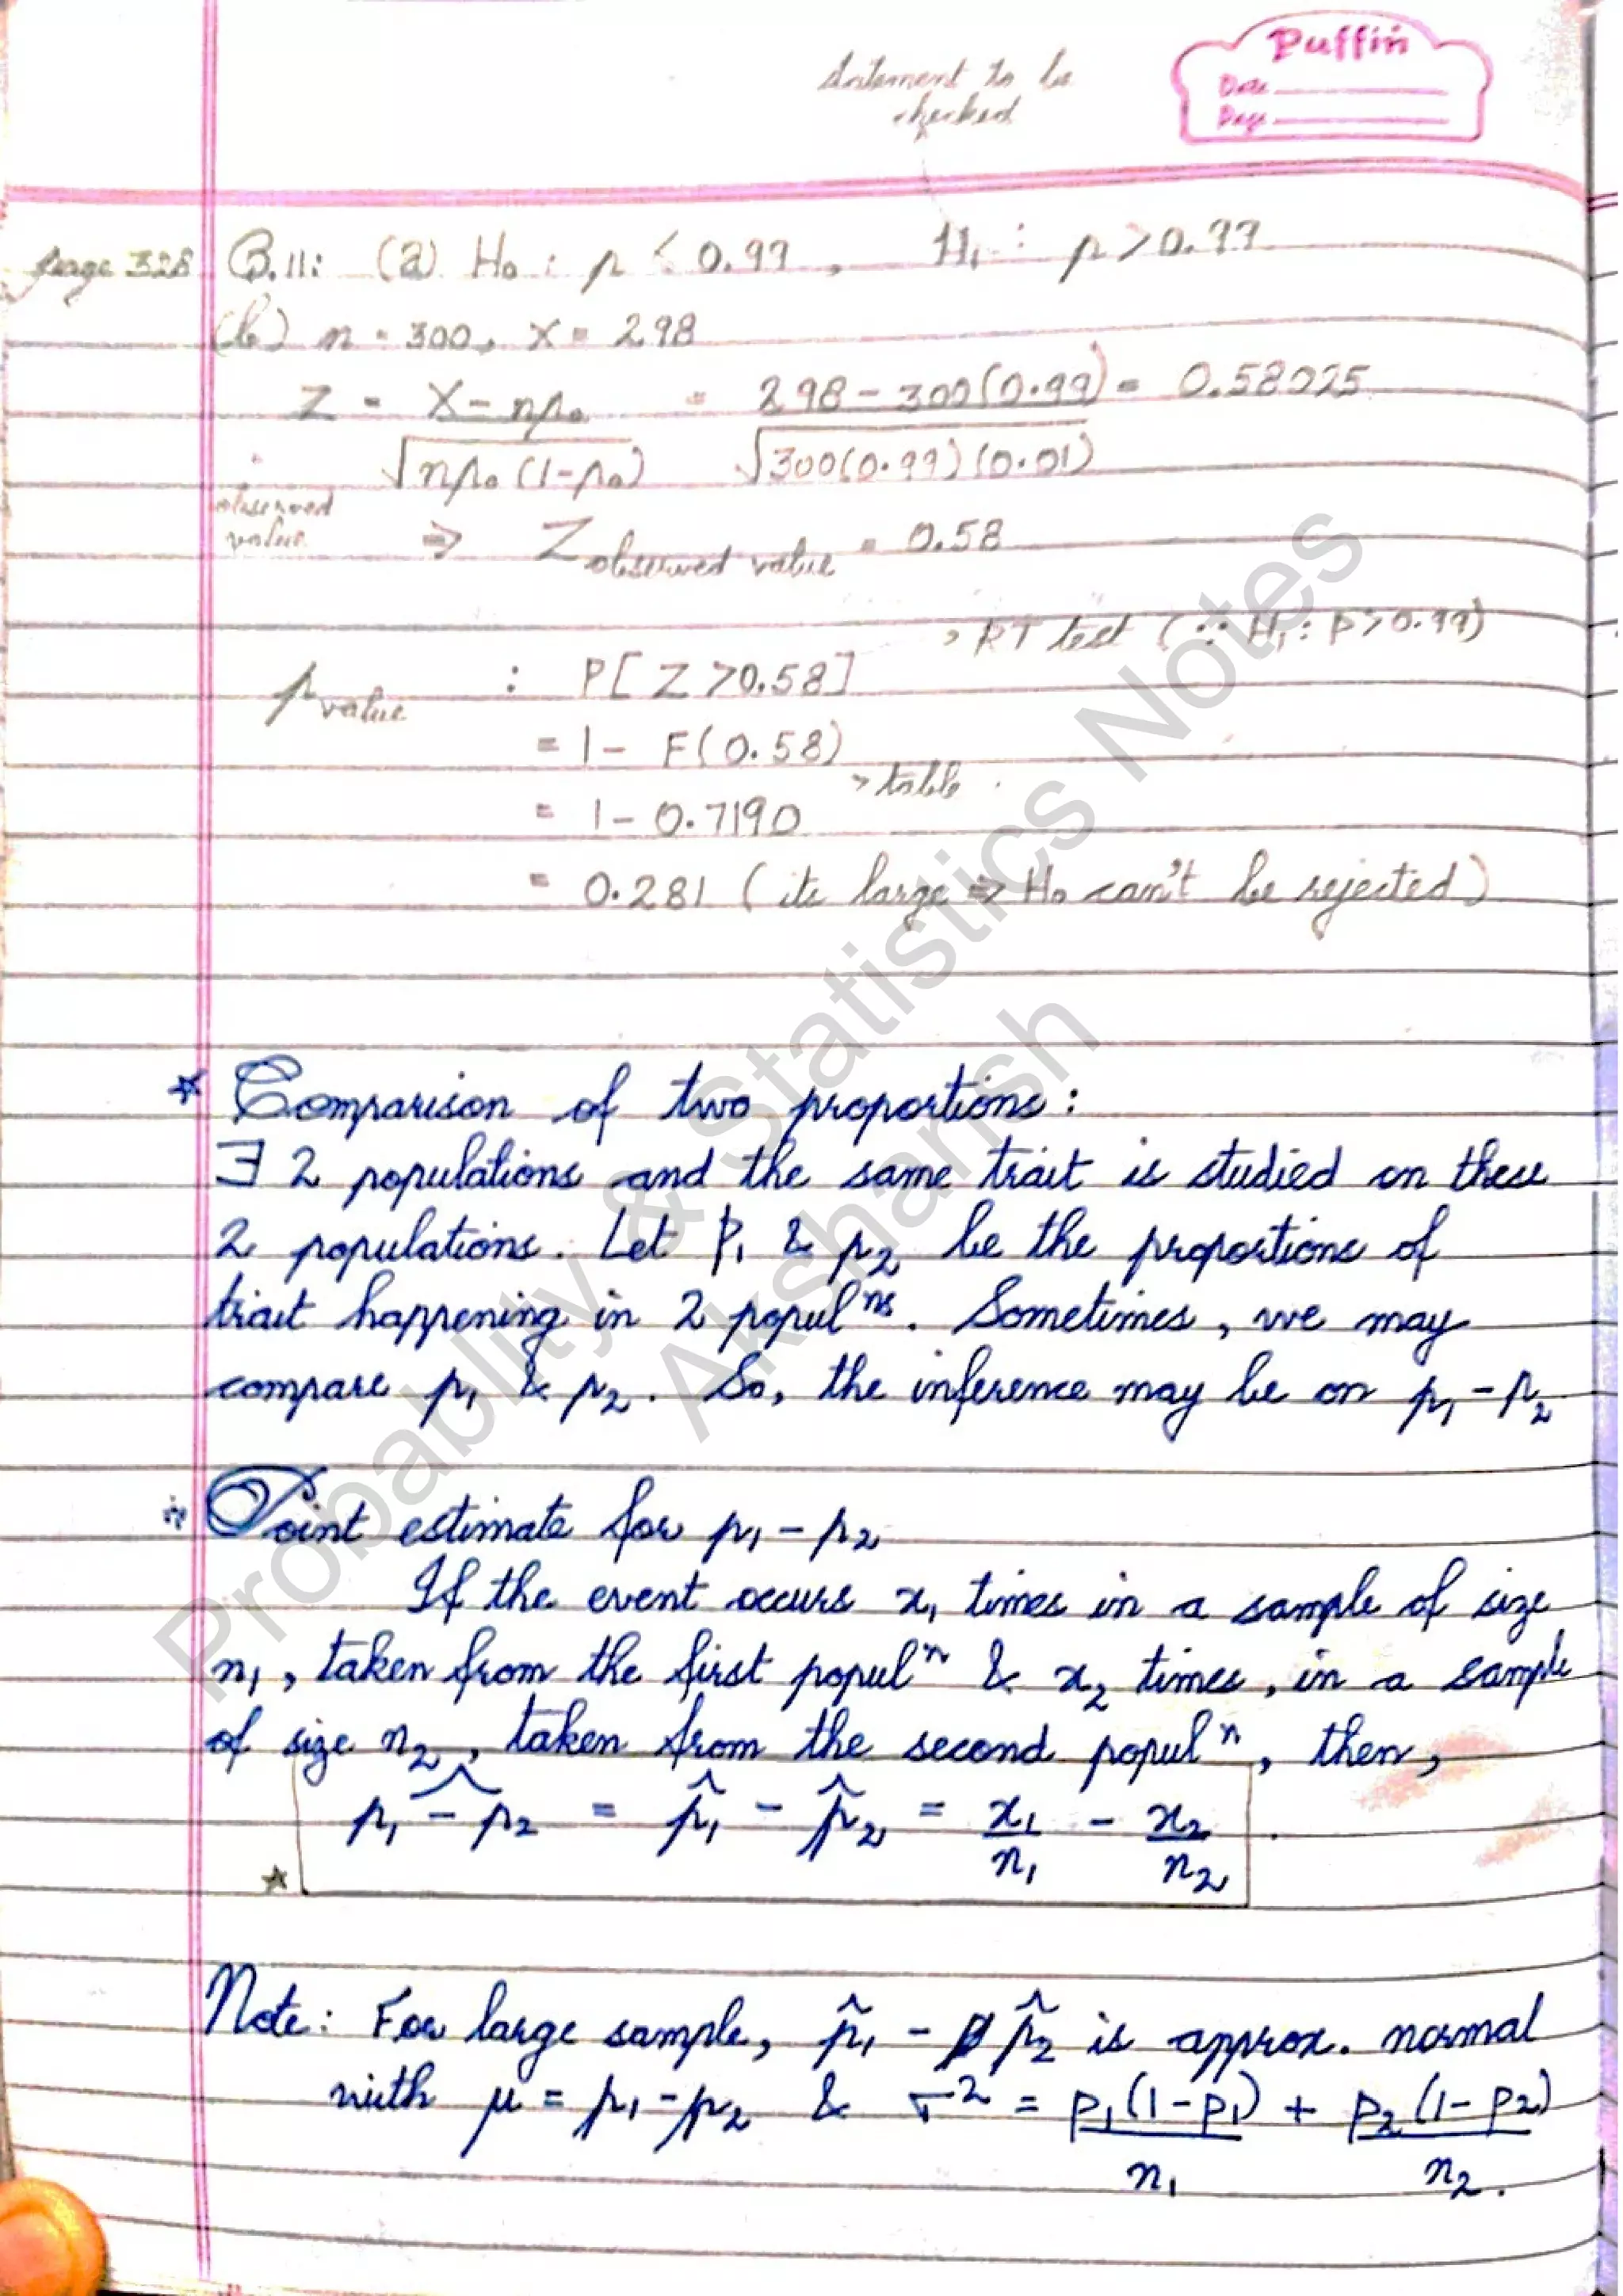 Puffin
Date
Page
statement to be
checked
page 328 Q.11: (a) H₀ : p < 0.99 , H₁ : p > 0.99
(b) n = 300, X = 298
Z = X - np₀ / √np₀(1-p₀) = 298 - 300(0.99) / √300(0.99)(0.01) = 0.58025
observed
value ⇒ Z observed value = 0.58
> RT test (∵ H₁ : p > 0.99)
p value : P[Z > 0.58]
= 1 - F(0.58)
> table
= 1 - 0.7190
= 0.281 (its large ⇒ H₀ can't be rejected)
* Comparison of two proportions :
∃ 2 populations and the same trait is studied on these
2 populations. Let p₁ & p₂ be the proportions of
trait happening in 2 populⁿˢ. Sometimes, we may
compare p₁ & p₂. So, the inference may be on p₁ - p₂
Point estimate for p₁ - p₂
If the event occurs x₁ times in a sample of size
n₁, taken from the first populⁿ & x₂ times, in a sample
of size n₂, taken from the second populⁿ, then,
p₁ - p₂^ = p̂₁ - p̂₂ = x₁/n₁ - x₂/n₂
Note: For large sample, p̂₁ - p̂₂ is approx. normal
with μ = p₁ - p₂ & σ² = p₁(1-p₁)/n₁ + p₂(1-p₂)/n₂.
Probablity & Statistics Notes
Aksharish